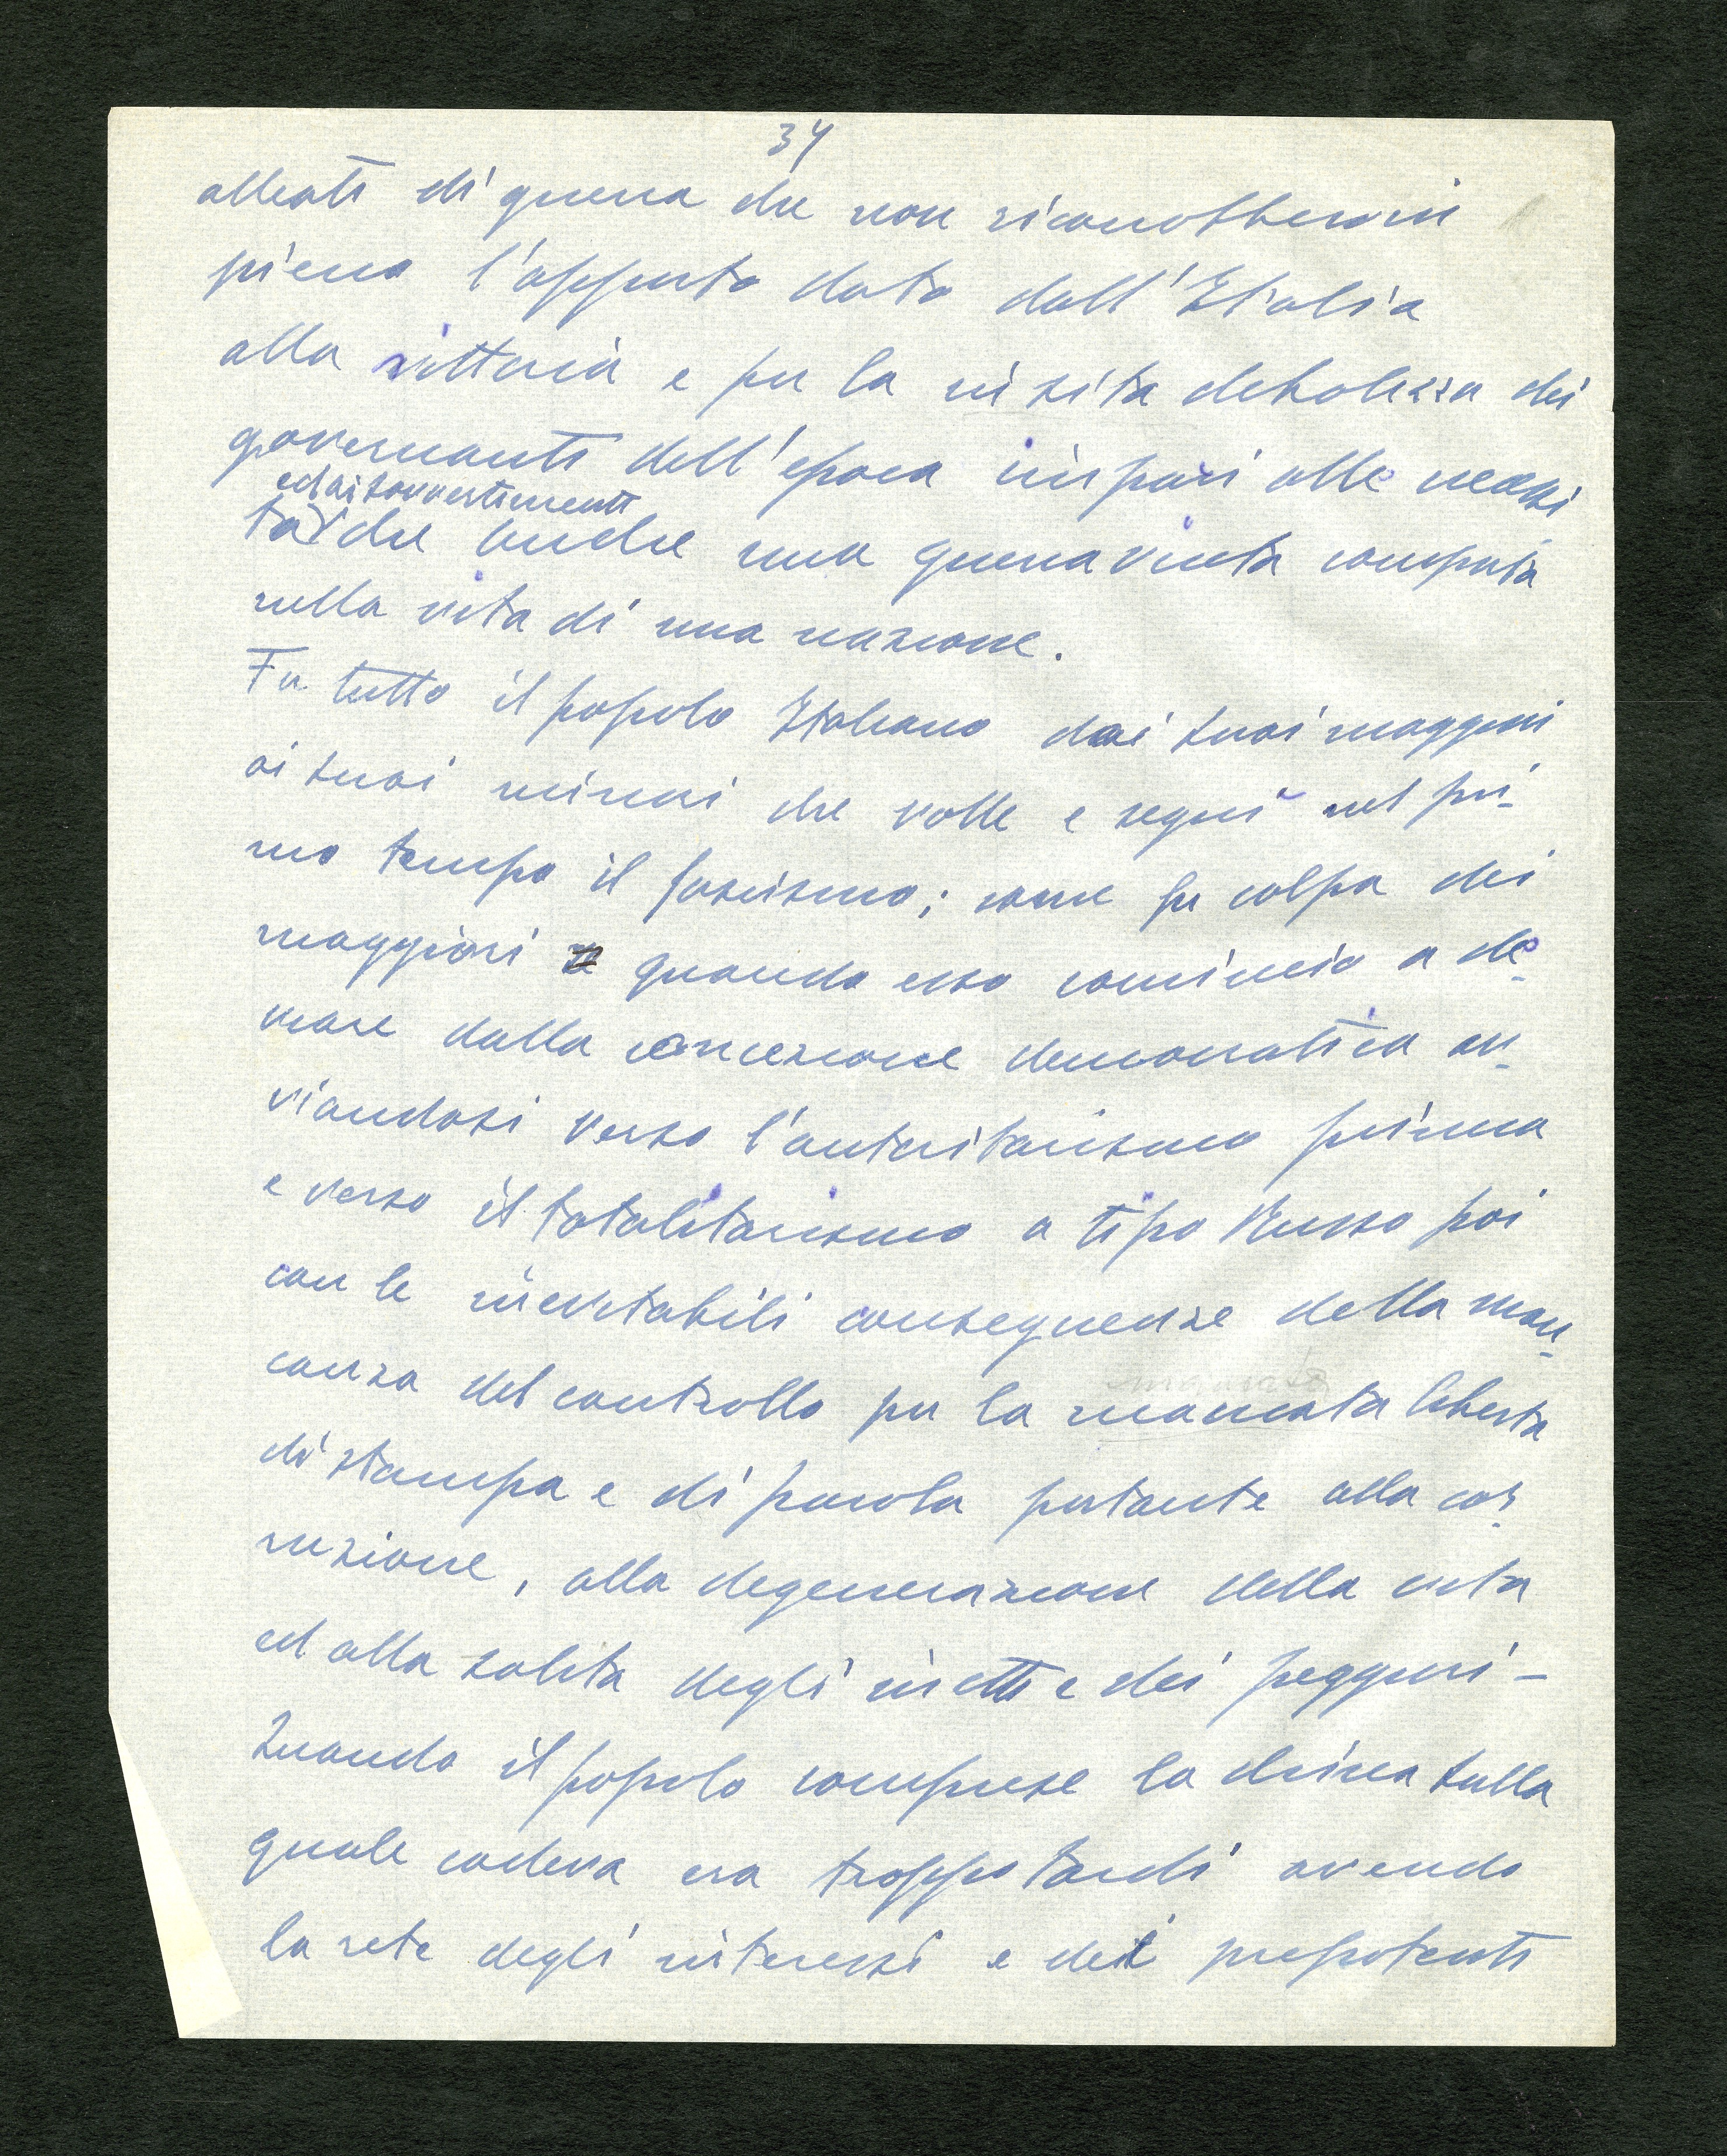 34
alleati di guerra che non riconobbero in
pieno l'apporto dato dall'Italia
alla vittoria e per la insita debolezza dei
governanti dell'epoca impari alle necessi
ed ai sovvertimenti
tà che anche una guerra vinta comporta
nella vita di una nazione.
Fu tutto il popolo Italiano dai suoi maggiori
ai suoi minori che volle e seguì nel pri-
mo tempo il fascismo; come fu colpa dei
maggiori quando esso cominciò a de-
viare dalla concezione democratica av-
viandosi verso l'autoritarismo prima
e verso il totalitarismo a tipo Russo poi
con le inevitabili conseguenze della man-
canza del controllo per la mancata libertà
di stampa e di parola portante alla cor-
ruzione, alla degenerazione della vita
ed alla salita degli inetti e dei peggiori -
Quando il popolo comprese la china sulla
quale cadeva era troppo tardi avendo
la rete degli interessi e dei prepotenti